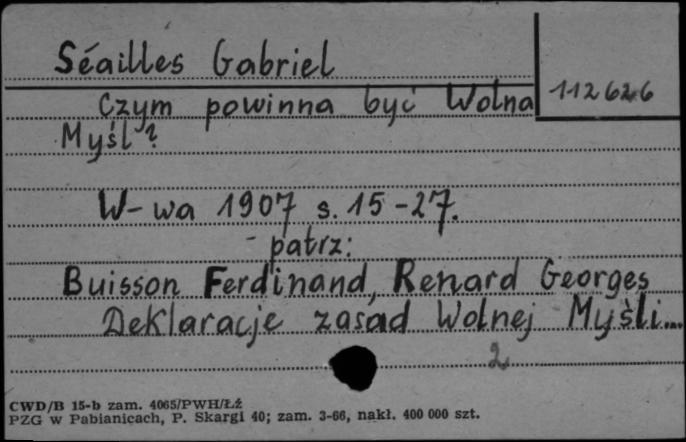 Séailles Gabriel
112626
Czym powinna być Wolna
Myśl?
W-wa 1907 s. 15-27.
- patrz:
Buisson Ferdinand, Renard Georges
Deklaracje zasad Wolnej Myśli...
2
CWD/B 15-b zam. 4065/PWH/Łź
PZG w Pabianicach, P. Skargi 40; zam. 3-66, nakł. 400 000 szt.